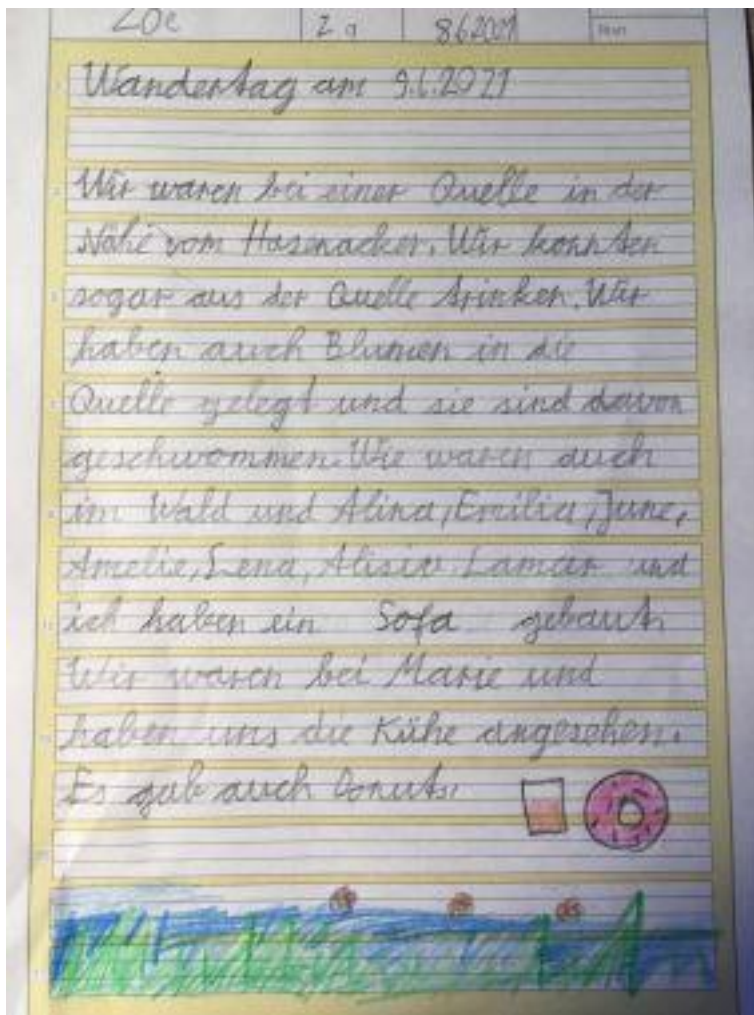 Zoe 2a 8.6.2021
Wandertag am 9.6.2021
Wir waren bei einer Quelle in der
Nähe vom Hasenacker. Wir konnten
sogar aus der Quelle trinken. Wir
haben auch Blumen in die
Quelle gelegt und sie sind davon
geschwommen. Wir waren auch
im Wald und Alina, Emilia, June,
Amelie, Lena, Lamar und
ich haben ein Sofa gebaut.
Wir waren bei Marie und
haben uns die Kühe angesehen.
Es gab auch Donuts.